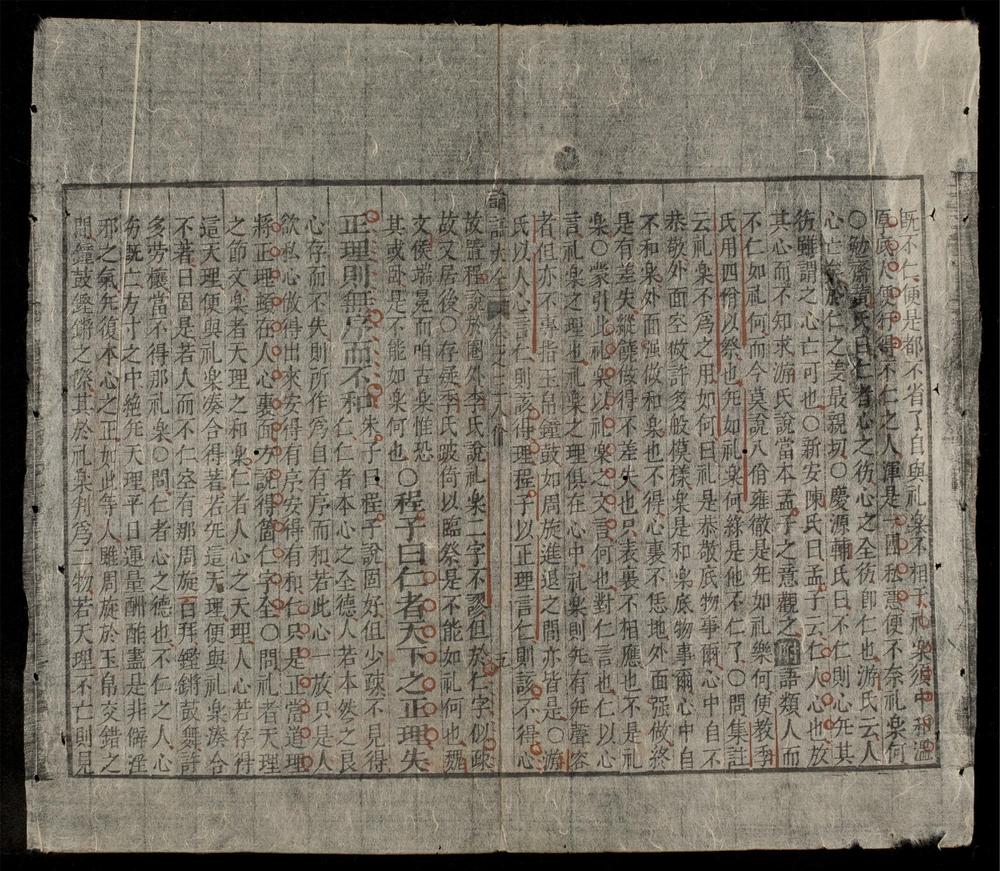 既不仁便是都不省了自與礼楽不相干礼楽須中和溫
厚底人便行得不仁之人渾是一團私意便不奈礼楽何
○勉齋黃氏曰仁者心之德心之全德即仁也游氏云人
心亡矣於仁之義最親切○慶源輔氏曰不仁則心无其
德雖謂之心亡可也○新安陳氏曰孟子云仁人心也放
其心而不知求游氏說當本孟子之意觀之附語類人而
不仁如礼何而今莫說八佾雍徹是无如礼樂何便教季
氏用四佾以祭也无如礼楽何緣是他不仁了○問集註
云礼楽不為之用如何曰礼是恭敬底物事爾心中自不
恭敬外面空做許多般模樣楽是和楽底物事爾心中自
不和楽外面强做和楽也不得心裏不恁地外面强做終
是有差失縱饒做得不差失也只表裏不相應也不是礼
楽○蒙引此礼楽以礼楽之文言何也對仁言也仁以心
言礼楽之理也礼楽之理俱在心中礼楽則无有死聲容
者但亦不專指玉帛鐘鼓如周旋進退之間亦皆是○游
氏以人心言仁則該得理程子以正理言仁則該不得心
論語大全 卷之三 八佾 五
故置程說於圈外李氏說礼楽二字不謬但於仁字似疎
故又居後○存疑季氏跛倚以臨祭是不能如礼何也魏
文侯端冕而听古楽惟恐
其或卧是不能如楽何也 ○程子曰仁者天下之正理失
正理則無序而不和 朱子曰程子說固好但少疎不見得
仁仁者本心之全德人若本然之良
心存而不失則所作為自有序而和若此心一放只是人
欲私心做得出來安得有序安得有和仁只是正當道理
將正理頓在人心裏面方說得箇仁字全○問礼者天理
之節文楽者天理之和楽仁者人心之天理人心若存得
這天理便與礼楽湊合得著若无這天理便與礼楽湊合
不著曰固是若人而不仁空有那周旋百拜鏗鏘鼓舞許
多劳攘當不得那礼楽○問仁者心之德也不仁之人心
德既亡方寸之中絶无天理平日運量酬酢盡是非僻淫
邪之氣无復本心之正如此等人雖周旋於玉帛交錯之
間鐘鼓鏗鏘之際其於礼楽判為二物若天理不亡則見